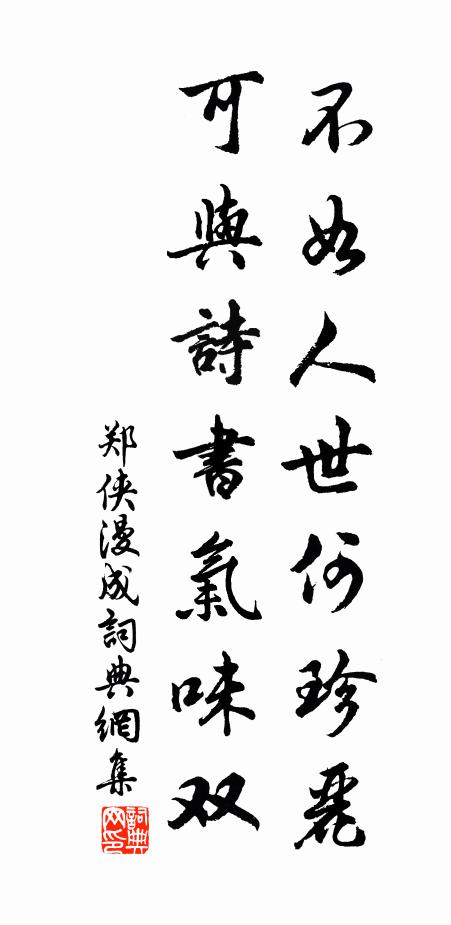 不如人世何珍麗
可與詩書氣味双
郑侠漫成詞典網集
詞典网印